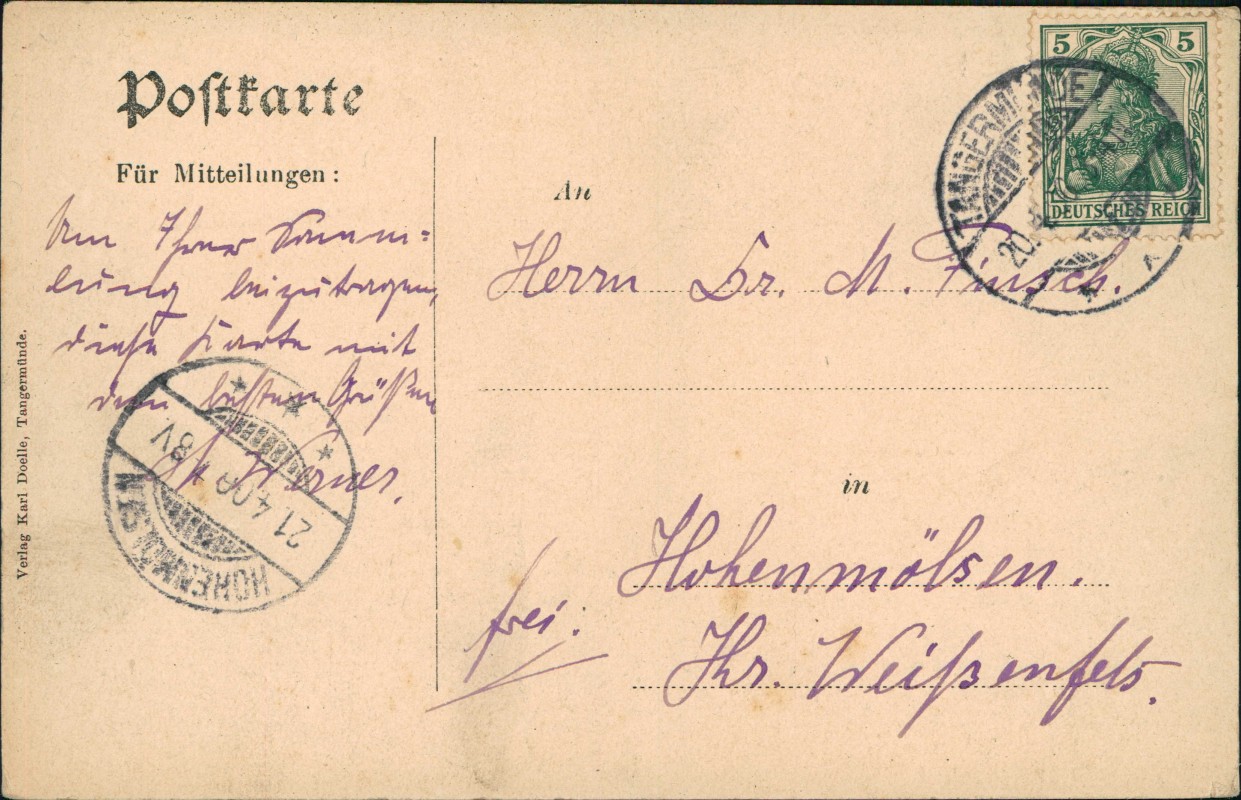 Postkarte
Für Mitteilungen:
Um Ihrer Samm=
lung beizutragen,
diese Karte mit
den besten Grüßen
Werner.
Verlag Karl Doelle, Tangermünde.
5 5
DEUTSCHES REICH
TANGERMÜNDE
20.
An
Herrn Dr. M. Finsch.
in
Hohenmölsen.
frei.
Kr. Weißenfels.
HOHENMÖLSEN
21 4 09 8V